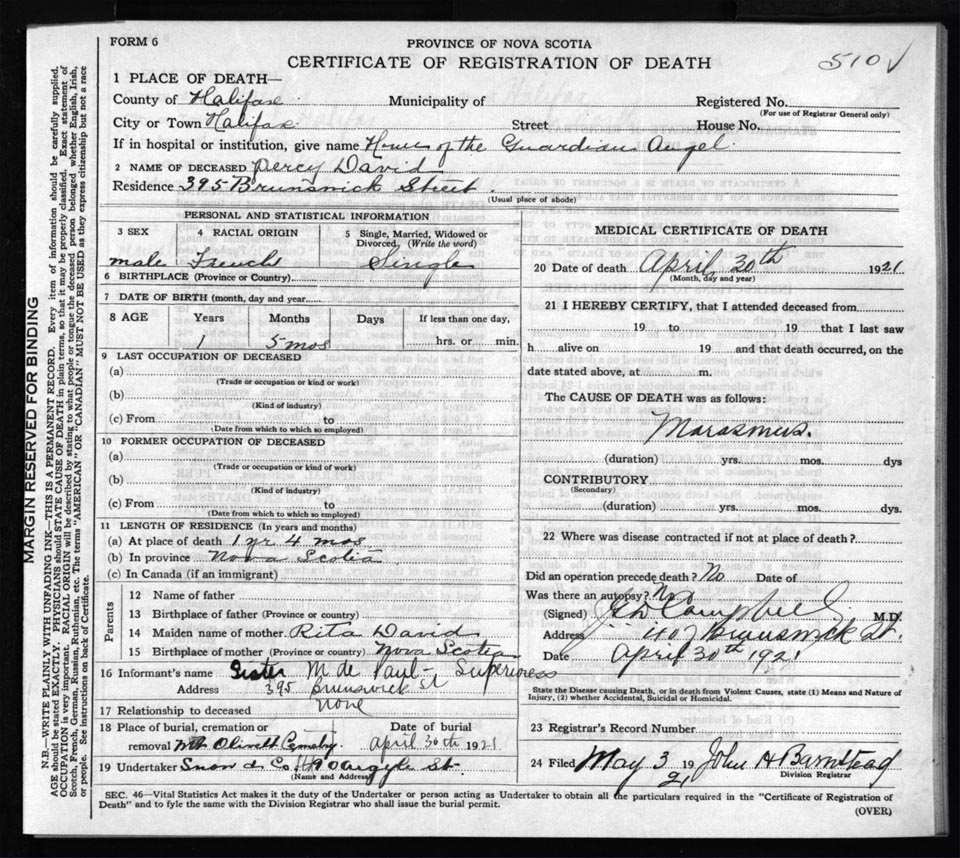 FORM 6
PROVINCE OF NOVA SCOTIA
CERTIFICATE OF REGISTRATION OF DEATH
510 ✓
1 PLACE OF DEATH—
County of Halifax Municipality of Registered No.
(For use of Registrar General only)
City or Town Halifax Street House No.
If in hospital or institution, give name Home of the Guardian Angel
2 NAME OF DECEASED Percy David
Residence 395 Brunswick Street.
(Usual place of abode)
PERSONAL AND STATISTICAL INFORMATION
3 SEX 4 RACIAL ORIGIN 5 Single, Married, Widowed or Divorced, (Write the word)
male French Single
6 BIRTHPLACE (Province or Country)
7 DATE OF BIRTH (month, day and year)
8 AGE Years Months Days If less than one day,
1 5 mos hrs. or min.
9 LAST OCCUPATION OF DECEASED
(a)
(Trade or occupation or kind or work)
(b)
(Kind of industry)
(c) From to
(Date from which to which so employed)
10 FORMER OCCUPATION OF DECEASED
(a)
(Trade or occupation or kind of work)
(b)
(Kind of industry)
(c) From to
(Date from which to which so employed)
11 LENGTH OF RESIDENCE (In years and months)
(a) At place of death 1 yr 4 mos
(b) In province Nova Scotia
(c) In Canada (if an immigrant)
Parents
12 Name of father
13 Birthplace of father (Province or country)
14 Maiden name of mother Rita David
15 Birthplace of mother (Province or country) Nova Scotia
16 Informant's name Sister M de Paul - Superioress
Address 395 Brunswick St
17 Relationship to deceased none
18 Place of burial, cremation or removal Mt Olivett Cemetry
Date of burial April 30th 1921
19 Undertaker Snow & Co 90 Argyle St.
(Name and Address)
MEDICAL CERTIFICATE OF DEATH
20 Date of death April, 30th 1921
(Month, day and year)
21 I HEREBY CERTIFY, that I attended deceased from
19 to 19 that I last saw
h alive on 19 and that death occurred, on the
date stated above, at m.
The CAUSE OF DEATH was as follows:
Marasmus.
(duration) yrs. mos. dys
CONTRIBUTORY
(Secondary)
(duration) yrs. mos. dys.
22 Where was disease contracted if not at place of death?
Did an operation precede death? No Date of
Was there an autopsy? No
(Signed) Campbell M.D.
Address 407 Brunswick St.
Date April 30th 1921
State the Disease causing Death, or in death from Violent Causes, state (1) Means and Nature of
Injury, (2) whether Accidental, Suicidal or Homicidal.
23 Registrar's Record Number
24 Filed May 3 1921 John H Barnstead
Division Registrar
SEC. 46—Vital Statistics Act makes it the duty of the Undertaker or person acting as Undertaker to obtain all the particulars required in the "Certificate of Registration of
Death" and to fyle the same with the Division Registrar who shall issue the burial permit.
(OVER)
MARGIN RESERVED FOR BINDING
N.B.—WRITE PLAINLY WITH UNFADING INK—THIS IS A PERMANENT RECORD. Every item of information should be carefully supplied.
AGE should be stated EXACTLY. PHYSICIANS should STATE CAUSE OF DEATH in plain terms, so that it may be properly classified. Exact statement of
OCCUPATION is very important. RACIAL ORIGIN will be described by stating to what people or tongue the deceased person belonged whether English, Irish,
Scotch, French, German, Russian, Ruthenian, etc. The terms "AMERICAN" OR "CANADIAN" MUST NOT BE USED as they express citizenship but not a race
or people. See instructions on back of Certificate.